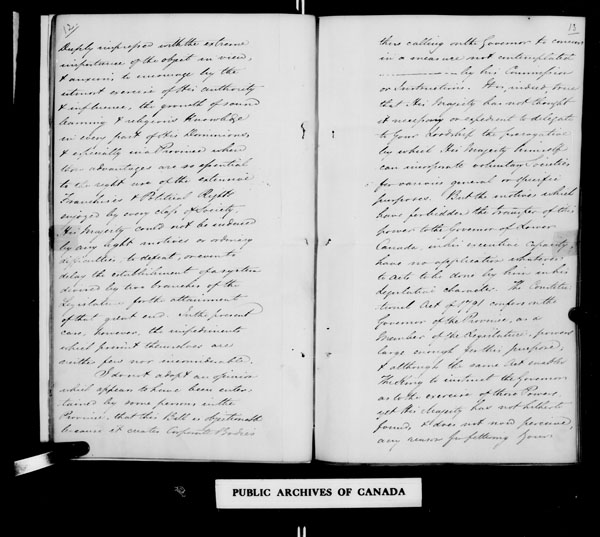 12.
Deeply impressed with the extreme
importance of the object in view,
& anxious to encourage by the
utmost exercise of His authority
& influence, the growth of sound
learning & religious knowledge
in every part of His Dominions,
& especially in a Province where
those advantages are so essential
to the right use of the extensive
Franchises & Political Rights
enjoyed by every class of Society,
His Majesty could not be induced
by any light motives or ordinary
difficulties, to defeat, or even to
delay the establishment of a system
devised by two branches of the
Legislature for the attainment
of that great end. In the present
case, however, the impediments
which present themselves are
neither few nor inconsiderable.
I do not adopt an opinion
which appears to have been enter-
tained by some persons in the
Province, that this Bill is objectionable
because it creates Corporate Bodies
13
thus calling on the Governor to concur
in a measure not contemplated
by his Commission
or Instructions. It is, indeed, true
that His Majesty has not thought
it necessary or expedient to delegate
to Your Lordship the prerogative
by which His Majesty himself
can incorporate voluntary Societies
for various general or specific
purposes. But the motives which
have forbidden the transfer of this
power to the Governor of Lower
Canada, in his executive capacity,
have no application whatever
to acts to be done by him in his
legislative character. The Constitu-
tional Act of 1791 confers on the
Governor of the Province, as a
Member of the Legislature, powers
large enough for this purpose,
& although the same Act enables
The King to instruct the Governor
as to the exercise of those Powers,
yet His Majesty has not hitherto
found, & does not now perceive,
any reason for fettering Your
PUBLIC ARCHIVES OF CANADA